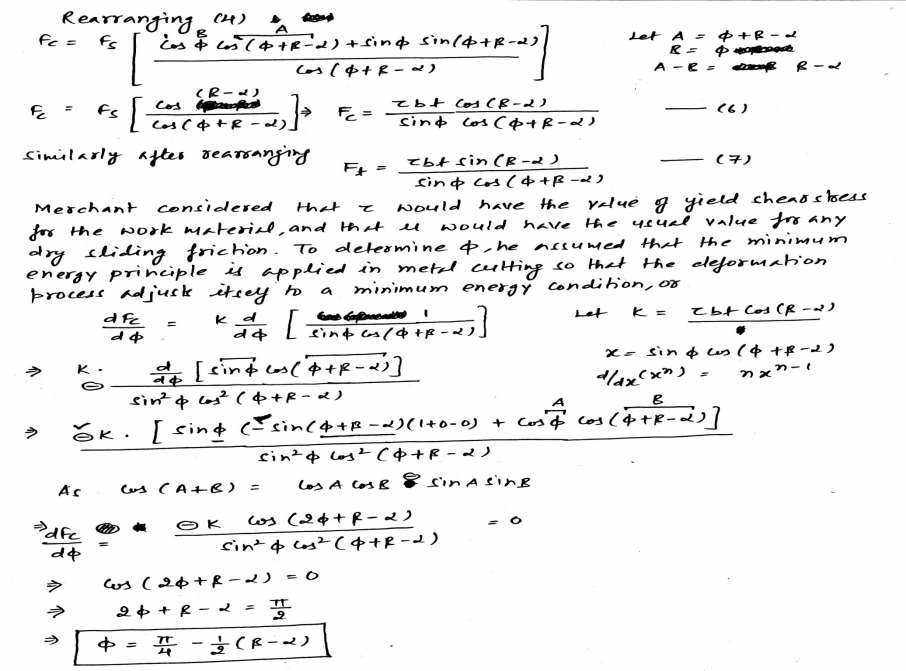 Rearranging (4)
Fc = Fs [ cos φ cos (φ+β-α) + sin φ sin (φ+β-α) / cos (φ+β-α) ]
B A
Let A = φ+β-α
B = φ
A-B = β-α
Fc = Fs [ cos (β-α) / cos (φ+β-α) ] ⇒ Fc = τbt cos (β-α) / sin φ cos (φ+β-α) — (6)
Similarly after rearranging Ft = τbt sin (β-α) / sin φ cos (φ+β-α) — (7)
Merchant considered that τ would have the value of yield shear stress
for the work material, and that μ would have the usual value for any
dry sliding friction. To determine φ, he assumed that the minimum
energy principle is applied in metal cutting so that the deformation
process adjusts itself to a minimum energy condition, or
dFc / dφ = K d / dφ [ 1 / sin φ cos (φ+β-α) ] Let K = τbt cos (β-α)
x = sin φ cos (φ+β-α)
d/dx (xⁿ) = n xⁿ⁻¹
⇒ K. ⊖ d / dφ [ sin φ cos (φ+β-α) ] / sin² φ cos² (φ+β-α)
⇒ ⊖ K. [ sin φ (- sin (φ+β-α) (1+0-0) + cos φ cos (φ+β-α) ] / sin² φ cos² (φ+β-α)
A B
As cos (A+B) = cos A cos B - sin A sin B
⇒ dFc / dφ = ⊖ K cos (2φ+β-α) / sin² φ cos² (φ+β-α) = 0
⇒ cos (2φ+β-α) = 0
⇒ 2φ+β-α = π/2
⇒ φ = π/4 - 1/2 (β-α)